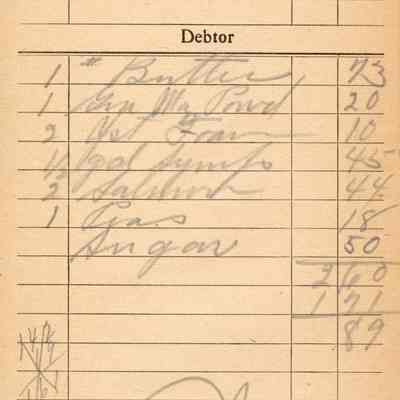 Debtor
1 # Butter 73
1 Powd 20
2 Yst Foam 10
1/2 gal Syrup 45
2 Salmon 44
1 Peas 18
Sugar 50
2 60
1 71
89